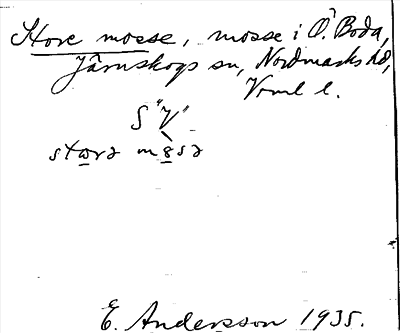 Store mosse, mosse i Ö. Boda,
Järnskogs sn, Nordmarks hd,
Vrml l.
S "V"
E. Andersson 1935.